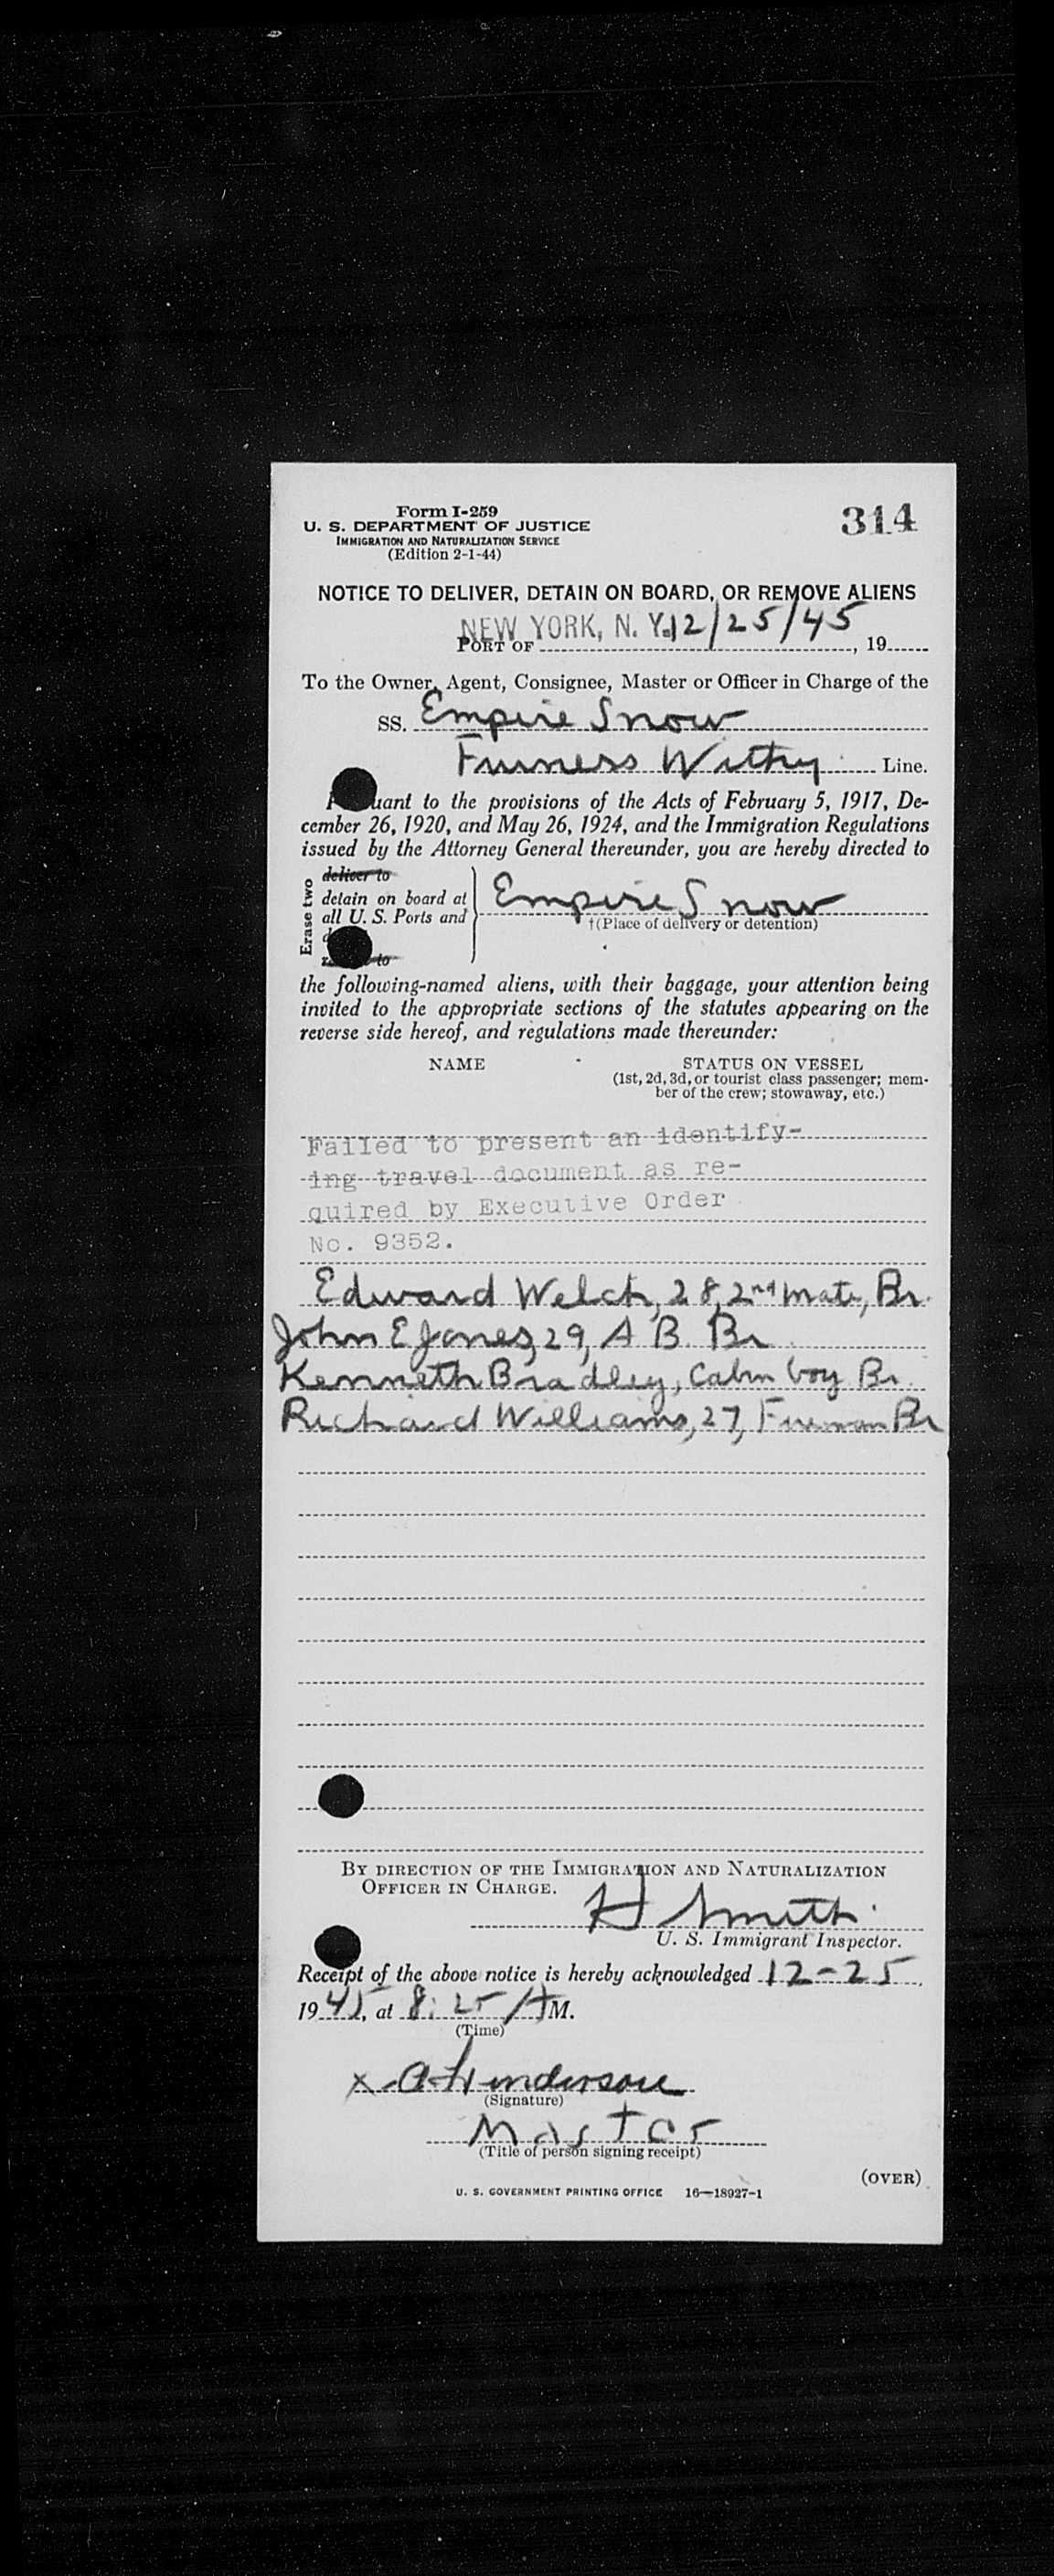 Form I-259
U. S. DEPARTMENT OF JUSTICE
IMMIGRATION AND NATURALIZATION SERVICE
(Edition 2-1-44)
314
NOTICE TO DELIVER, DETAIN ON BOARD, OR REMOVE ALIENS
NEW YORK, N. Y. 12/25/45
PORT OF , 19
To the Owner, Agent, Consignee, Master or Officer in Charge of the
SS. Empire Snow
Furness Withy Line.
uant to the provisions of the Acts of February 5, 1917, De-
cember 26, 1920, and May 26, 1924, and the Immigration Regulations
issued by the Attorney General thereunder, you are hereby directed to
Erase two
deliver to
detain on board at
all U. S. Ports and
to
Empire Snow
†(Place of delivery or detention)
the following-named aliens, with their baggage, your attention being
invited to the appropriate sections of the statutes appearing on the
reverse side hereof, and regulations made thereunder:
NAME
STATUS ON VESSEL
(1st, 2d, 3d, or tourist class passenger; mem-
ber of the crew; stowaway, etc.)
Failed to present an identify-
ing travel document as re-
quired by Executive Order
No. 9352.
Edward Welch, 28, 2nd mate, Br.
John E Jones, 29, A B. Br
Kenneth Bradley, Cabin boy Br.
Richard Williams, 27, Fireman Br
BY DIRECTION OF THE IMMIGRATION AND NATURALIZATION
OFFICER IN CHARGE.
H Smith
U. S. Immigrant Inspector.
Receipt of the above notice is hereby acknowledged 12-25,
1945, at 8:25 AM.
(Time)
x A Henderson
(Signature)
Master
(Title of person signing receipt)
(OVER)
U. S. GOVERNMENT PRINTING OFFICE 16—18927-1